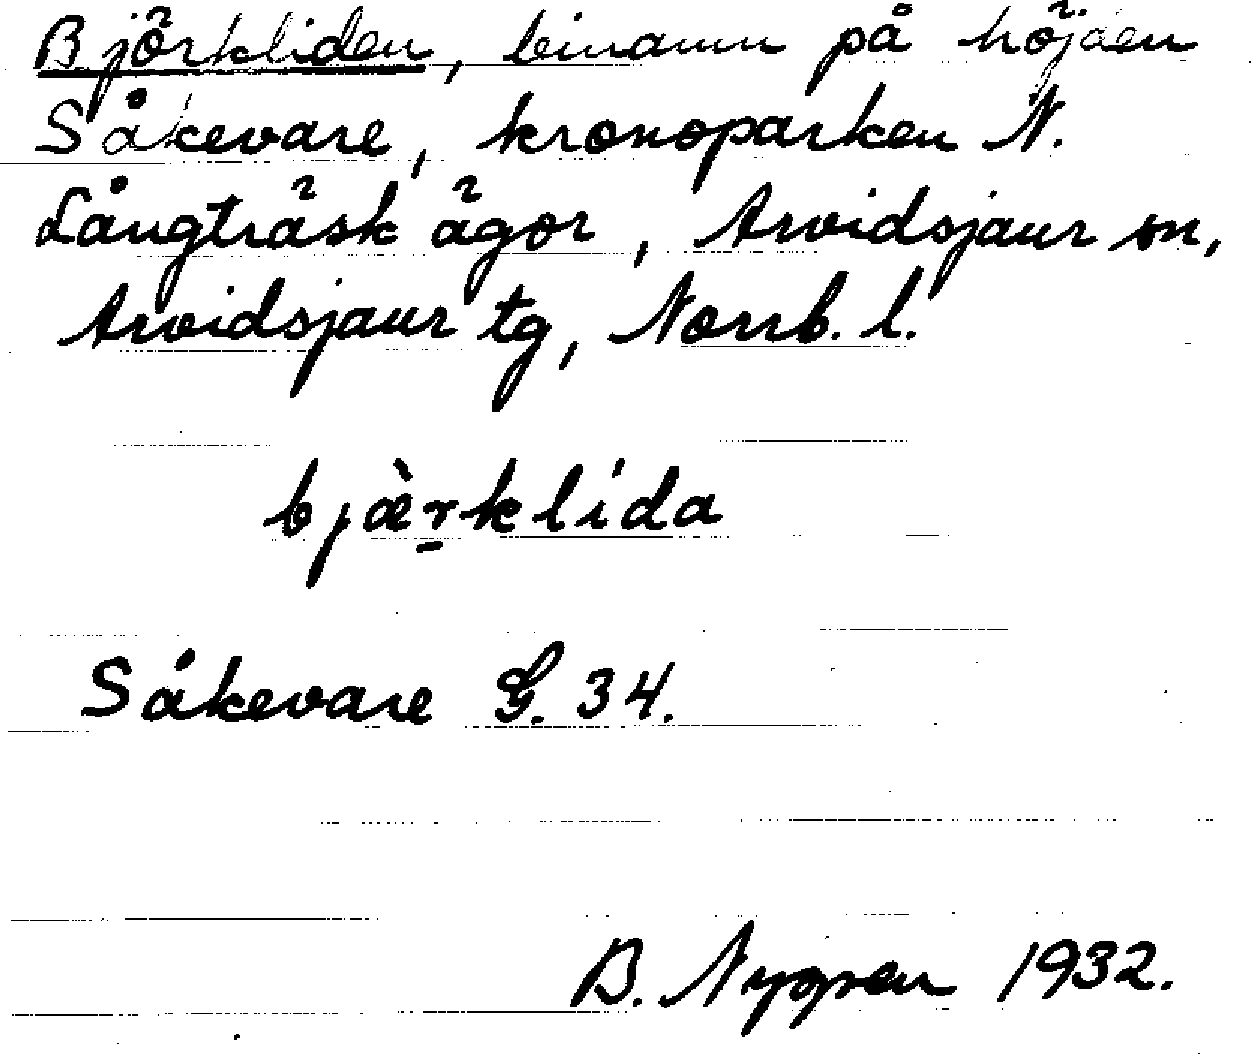 Björkliden, binamn på höjden
Såkevare, kronoparken N.
Långträsk ägor, Arvidsjaur sn,
Arvidsjaur tg, Norrb. l.
bjæ̀r̠klída
Såkevare G. 34.
B. Nygren 1932.